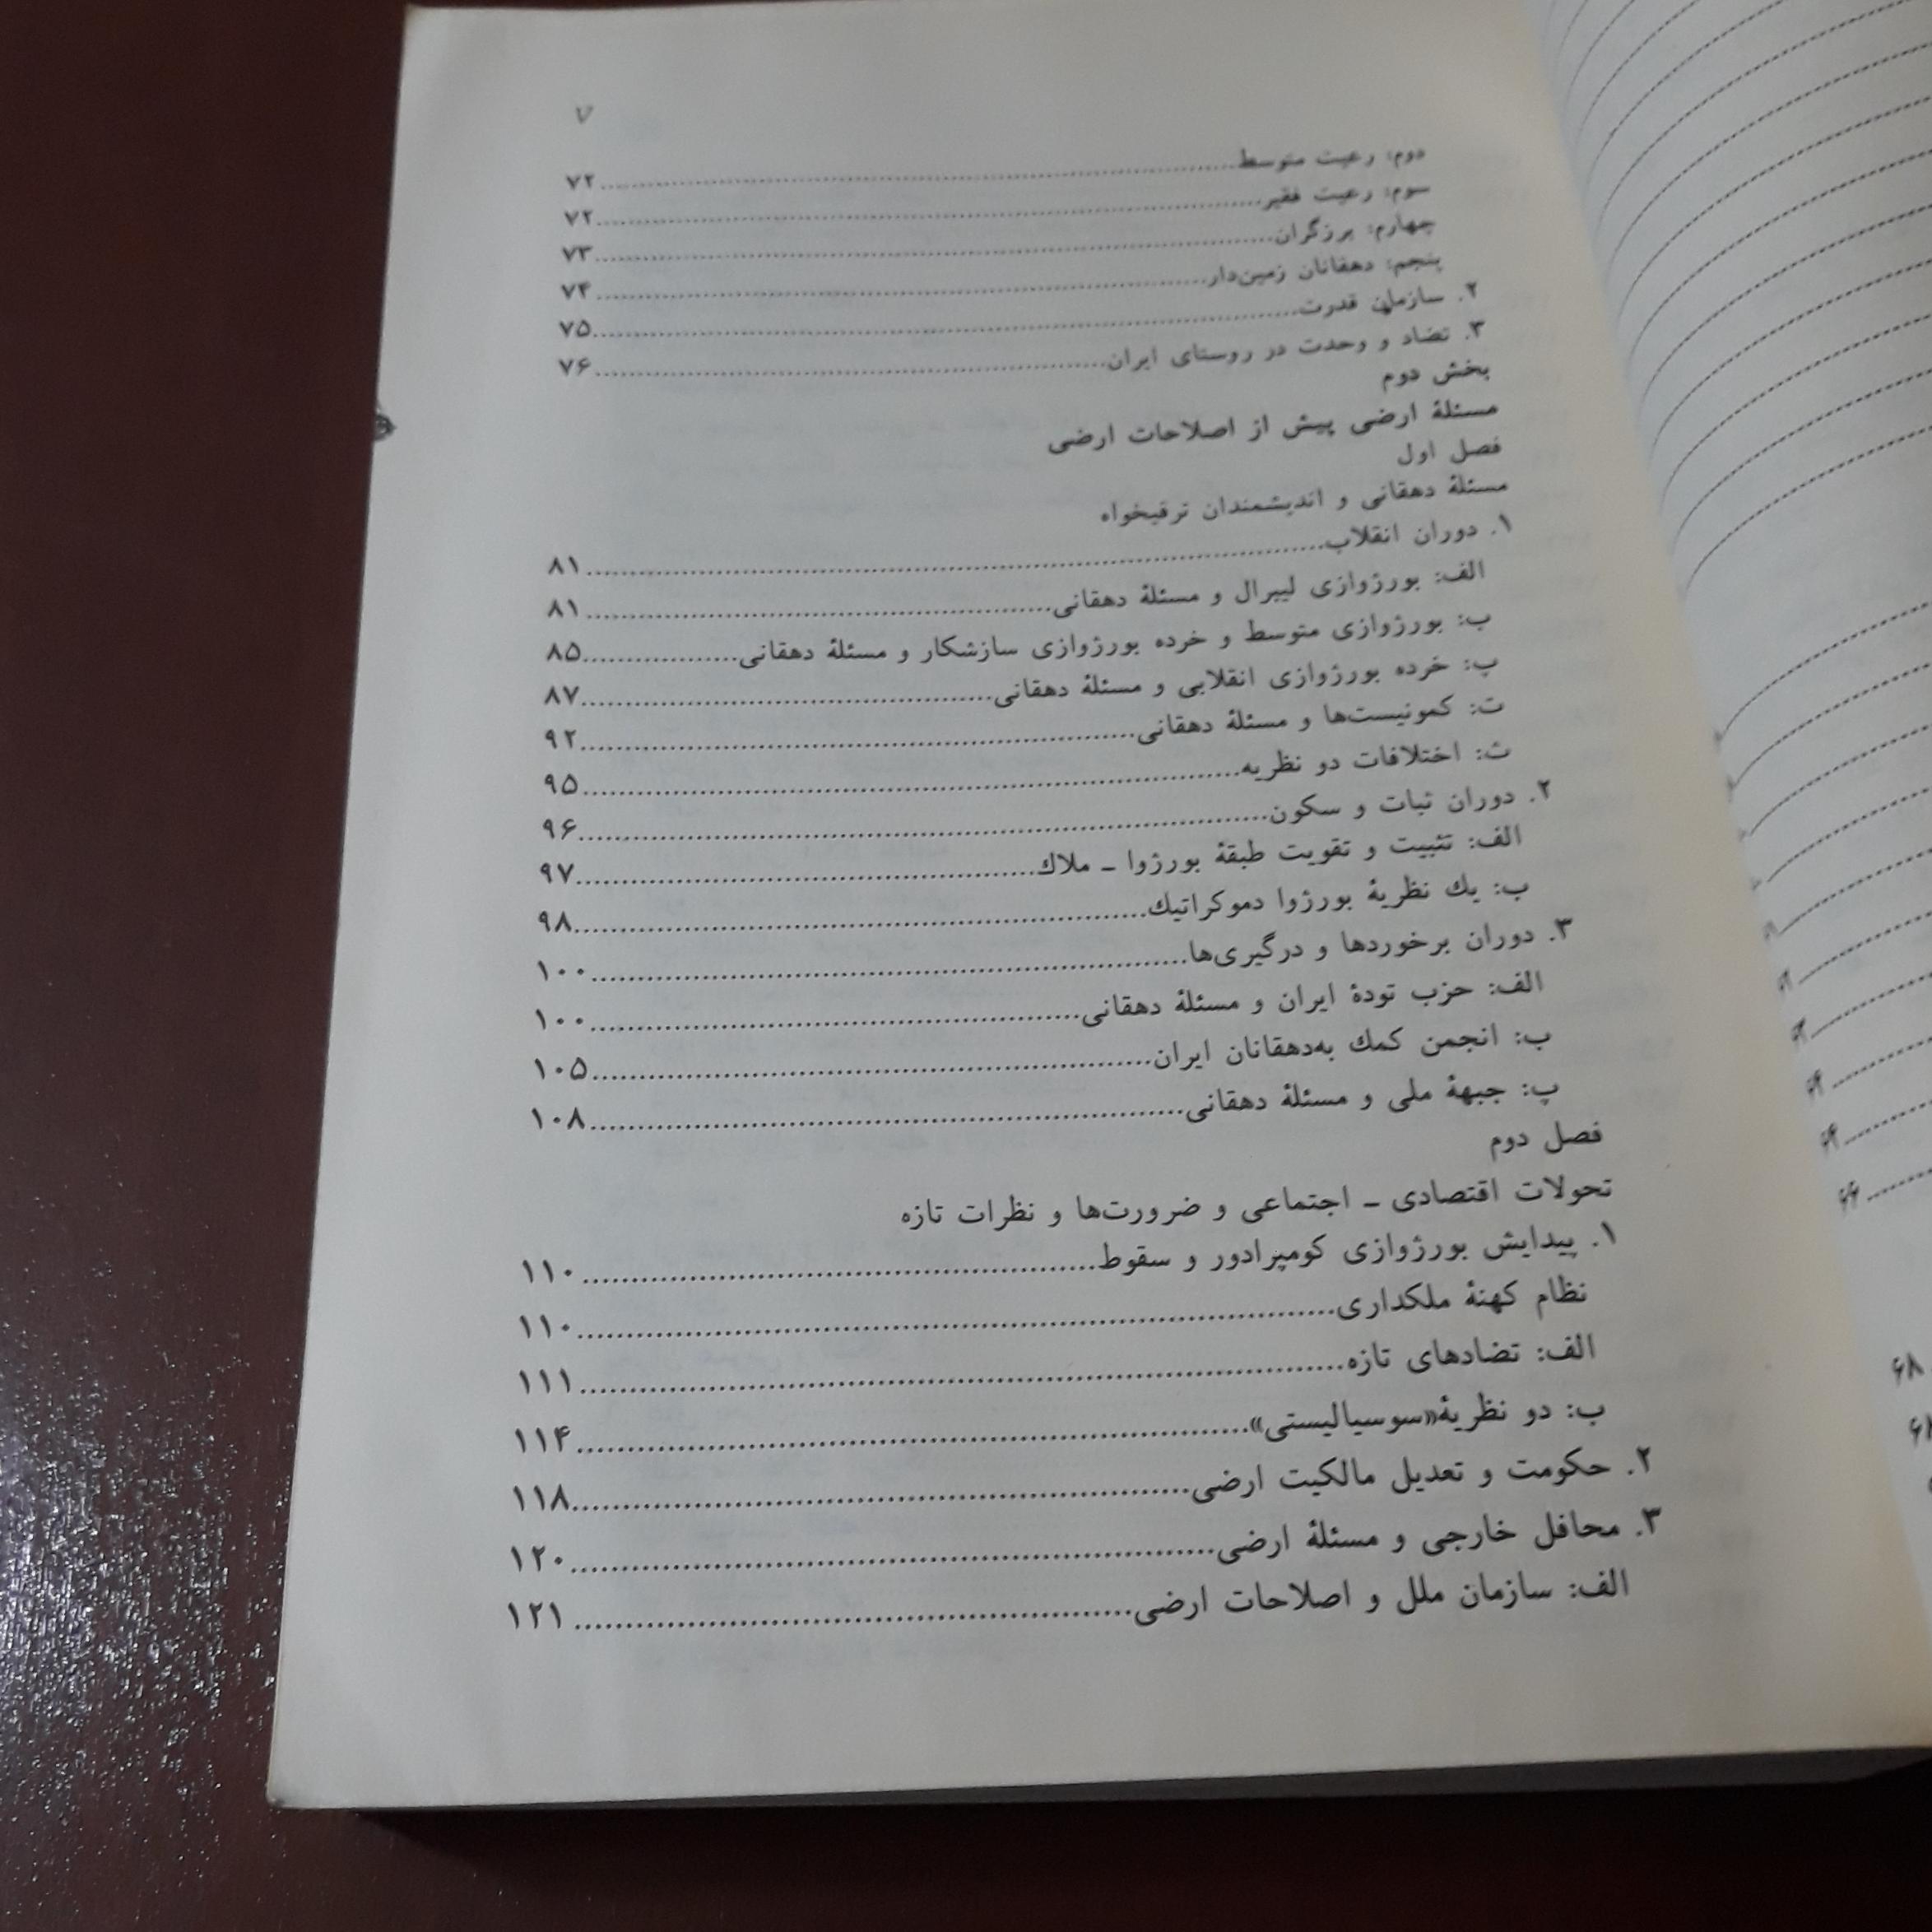 ۷
دوم: رعیت متوسط........................۷۲
سوم: رعیت فقیر........................۷۲
چهارم: برزگران........................۷۳
پنجم: دهقانان زمین‌دار........................۷۴
۲. سازمان قدرت........................۷۵
۳. تضاد و وحدت در روستای ایران........................۷۶
بخش دوم
مسئلهٔ ارضی پیش از اصلاحات ارضی
فصل اول
مسئلهٔ دهقانی و اندیشمندان ترقیخواه
۱. دوران انقلاب........................۸۱
الف: بورژوازی لیبرال و مسئلهٔ دهقانی........................۸۱
ب: بورژوازی متوسط و خرده بورژوازی سازشکار و مسئلهٔ دهقانی........................۸۵
پ: خرده بورژوازی انقلابی و مسئلهٔ دهقانی........................۸۷
ت: کمونیست‌ها و مسئلهٔ دهقانی........................۹۲
ث: اختلافات دو نظریه........................۹۵
۲. دوران ثبات و سکون........................۹۶
الف: تثبیت و تقویت طبقهٔ بورژوا ـ ملاك........................۹۷
ب: یك نظریهٔ بورژوا دموکراتیك........................۹۸
۳. دوران برخوردها و درگیری‌ها........................۱۰۰
الف: حزب تودهٔ ایران و مسئلهٔ دهقانی........................۱۰۰
ب: انجمن کمك به‌دهقانان ایران........................۱۰۵
پ: جبههٔ ملی و مسئلهٔ دهقانی........................۱۰۸
فصل دوم
تحولات اقتصادی ـ اجتماعی و ضرورت‌ها و نظرات تازه
۱. پیدایش بورژوازی کومپرادور و سقوط........................۱۱۰
نظام کهنهٔ ملکداری........................۱۱۰
الف: تضادهای تازه........................۱۱۱
ب: دو نظریهٔ«سوسیالیستی»........................۱۱۴
۲. حکومت و تعدیل مالکیت ارضی........................۱۱۸
۳. محافل خارجی و مسئلهٔ ارضی........................۱۲۰
الف: سازمان ملل و اصلاحات ارضی........................۱۲۱
۶۸